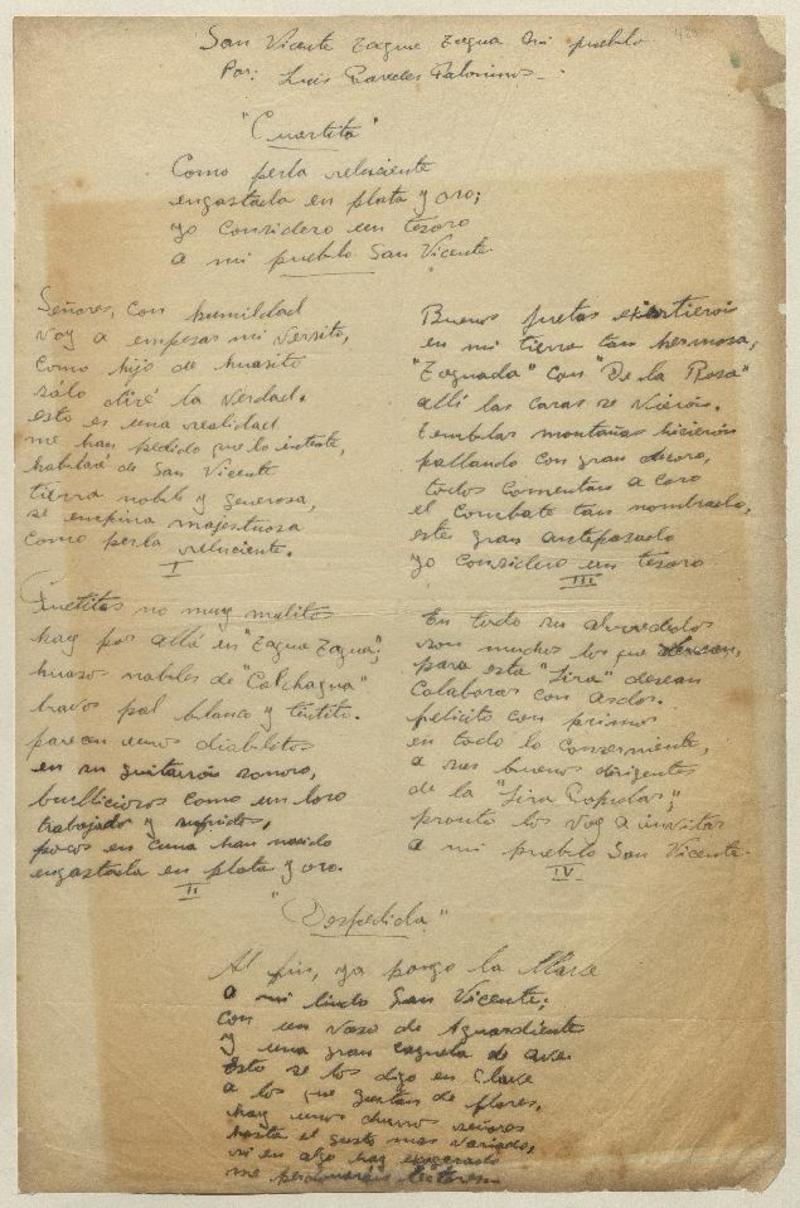 San Vicente Tagua Tagua mi pueblo
Por: Luis Paredes Palominos.
"Cuartita"
Como perla reluciente
engastada en plata y oro;
yo considero un tesoro
a mi pueblo San Vicente.
Señores, con humildad
voy a empesar mi versito,
como hijo de huasito
sólo diré la verdad.
esto es una realidad
me han pedido que lo intente,
hablaré de San Vicente
tierra noble y generosa,
se empina majestuosa
como perla reluciente.
I
Puetitas no muy malitos
hay por allá en "Tagua Tagua";
huasos nobles de "Colchagua"
bravos pal blanco y tintito.
parecen unos diablitos
en su guitarrón sonoro,
bullicioros como un loro
trabajado y sufridos,
pocos en cuna han nacido
engastada en plata y oro.
II
Buenos puetas existieron
en mi tierra tan hermosa,
"Taguada" con "De la Rosa"
allí las caras se vieron.
temblar montañas hicieron
pallando con gran decoro,
todos comentan a coro
el combate tan nombrado,
este gran antepasado
yo considero un tesoro
III
En todo su alrrededor
son muchos los que
para esta "Lira" desean
colaborar con
felicito con primor
en todo lo converniente,
a sus buenos dirigentes
de la "Lira Popular";
pronto los voy a invitar
a mi pueblo San Vicente.
IV
"Despedida"
Al fin, ya pongo la llave
a mi lindo San Vicente;
con un vaso de Aguardiente
y una gran cazuela de ave.
Esto se los digo en clave
a los que gustan de flores,
hay unos churros señores
hasta el gusto mas variado,
si en algo hay exagerado
me perdonaréis lectores.